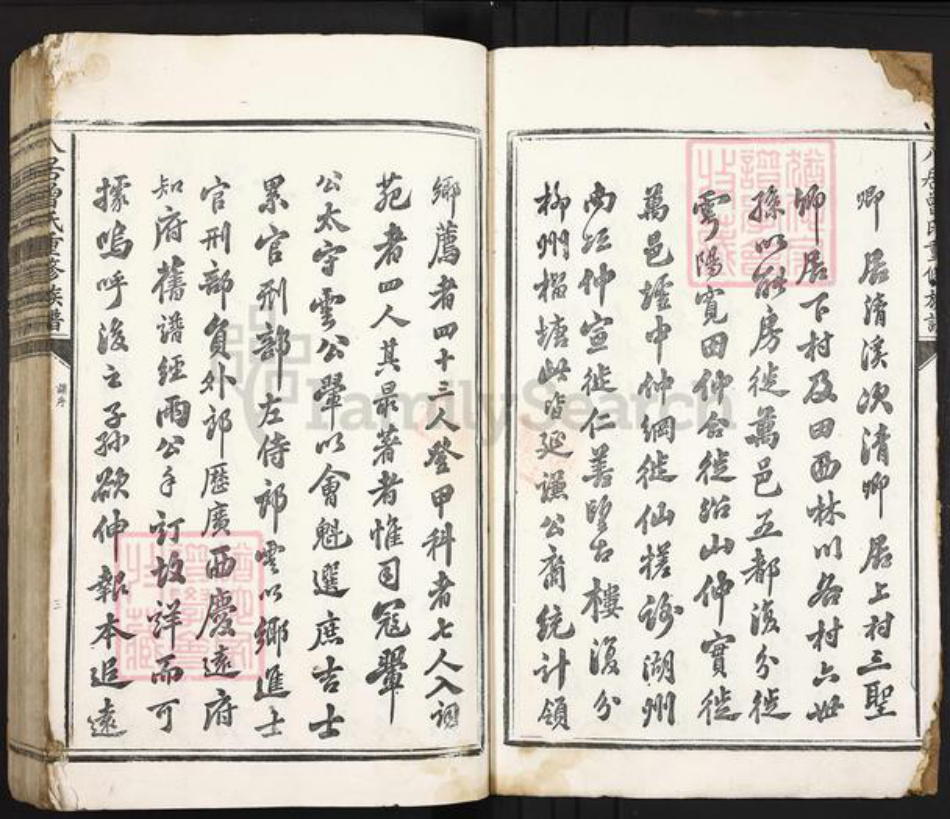 卿居清溪次清卿居上村三聖
卿居下村及田西林川各村六世
孫以能房徙萬邑五都復分徙
雲陽寬田仲合徙治山仲實徙
萬邑逕中仲綱徙仙槎沙湖州
南江仲宣徙仁善塱古樓復分
柳州榴塘此皆延謙公裔統計領
鄉薦者四十三人登甲科者七人入詞
苑者四人其最著者惟司寇翬
公太守雲公翬以會魁選庶吉士
累官刑部左侍郎雲以鄉進士
官刑部員外郎歷廣西慶遠府
知府舊譜經雨公手訂故詳而可
據嗚呼後之子孫欲伸報本追遠
八居曾氏重修族譜
譜序
三
FamilySearch